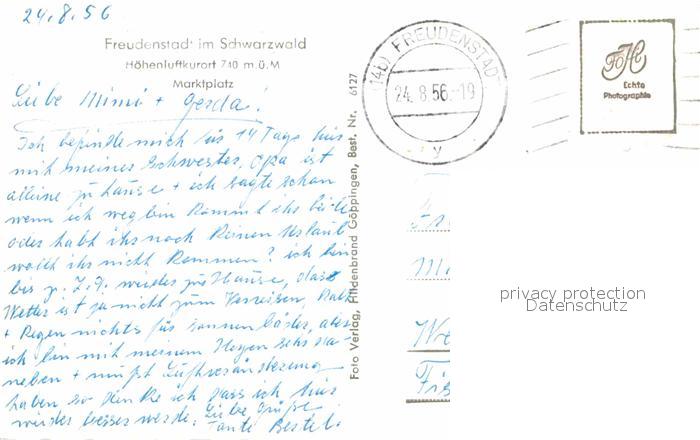 24.8.56
Freudenstadt im Schwarzwald
Höhenluftkurort 740 m.ü.M
Marktplatz
Liebe Mimi + Gerda!
Ich befinde mich bis 14 Tage hier
mit meiner Schwester, Opa ist
alleine zu Hause + ich sagte schon
wenn ich weg bin kommt ihr
oder habt ihr noch keinen Urlaub
wollt ihr nicht kommen? ich bin
bis z. 7.9. wieder zu Hause, das
Wetter ist ja nicht zum verreisen, Kalt
+ Regen nichts für Sonnenbäder, aber
ich bin mit meinem Magen sehr da-
neben + mußt Luftveränderung
haben so denke ich dass ich hier
wieder besser werde. Liebe Grüße
Tante Bestel.
Foto Verlag, Hildenbrand Göppingen, Best. Nr. 6127
(14b) FREUDENSTADT
24.8.56.-19
y
FoHi
Echte
Photographie
privacy protection
Datenschutz